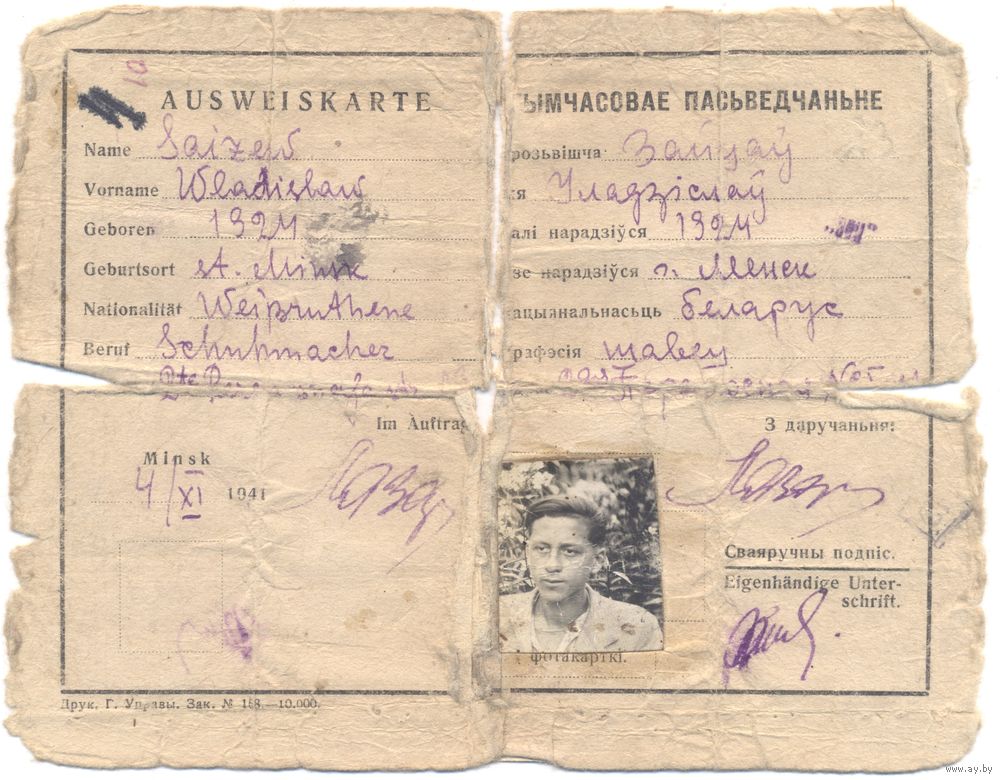 10
AUSWEISKARTE
Name Saizew
Vorname Wladislaw
Geboren 1924
Geburtsort st. Minsk
Nationalität Weißruthene
Beruf Schuhmacher
Im Auftrag
Minsk
4/XI 1941
Друк. Г. Управы. Зак. № 168—10.000.
ЫМЧАСОВАЕ ПАСЬВЕДЧАНЬНЕ
розьвішча Зайцаў
я Уладзіслаў
алі нарадзіўся 1924
зе нарадзіўся г. Менск
ацыянальнасьць беларус
рафэсія шавец
З даручаньня:
Сваяручны подпіс.
Eigenhändige Unter-
schrift.
фотакарткі.
www.ay.by